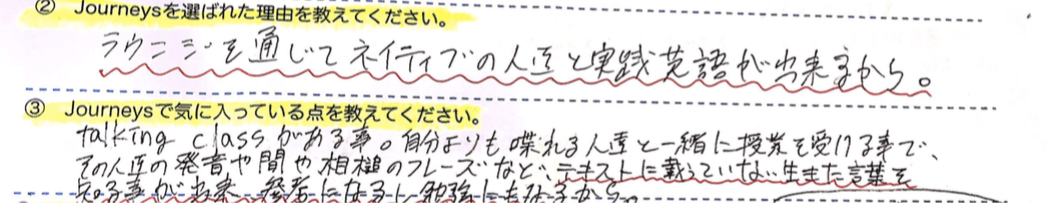 ② Journeysを選ばれた理由を教えてください。
ラウンジを通じてネイティブの人達と実践英語が出来るから。
③ Journeysで気に入っている点を教えてください。
talking classがある事。自分よりも喋れる人達と一緒に授業を受ける事で、
その人達の発音や間や相槌のフレーズなど、テキストに載っていない生きた言葉を
知る事が出来、参考になるし勉強にもなるから。